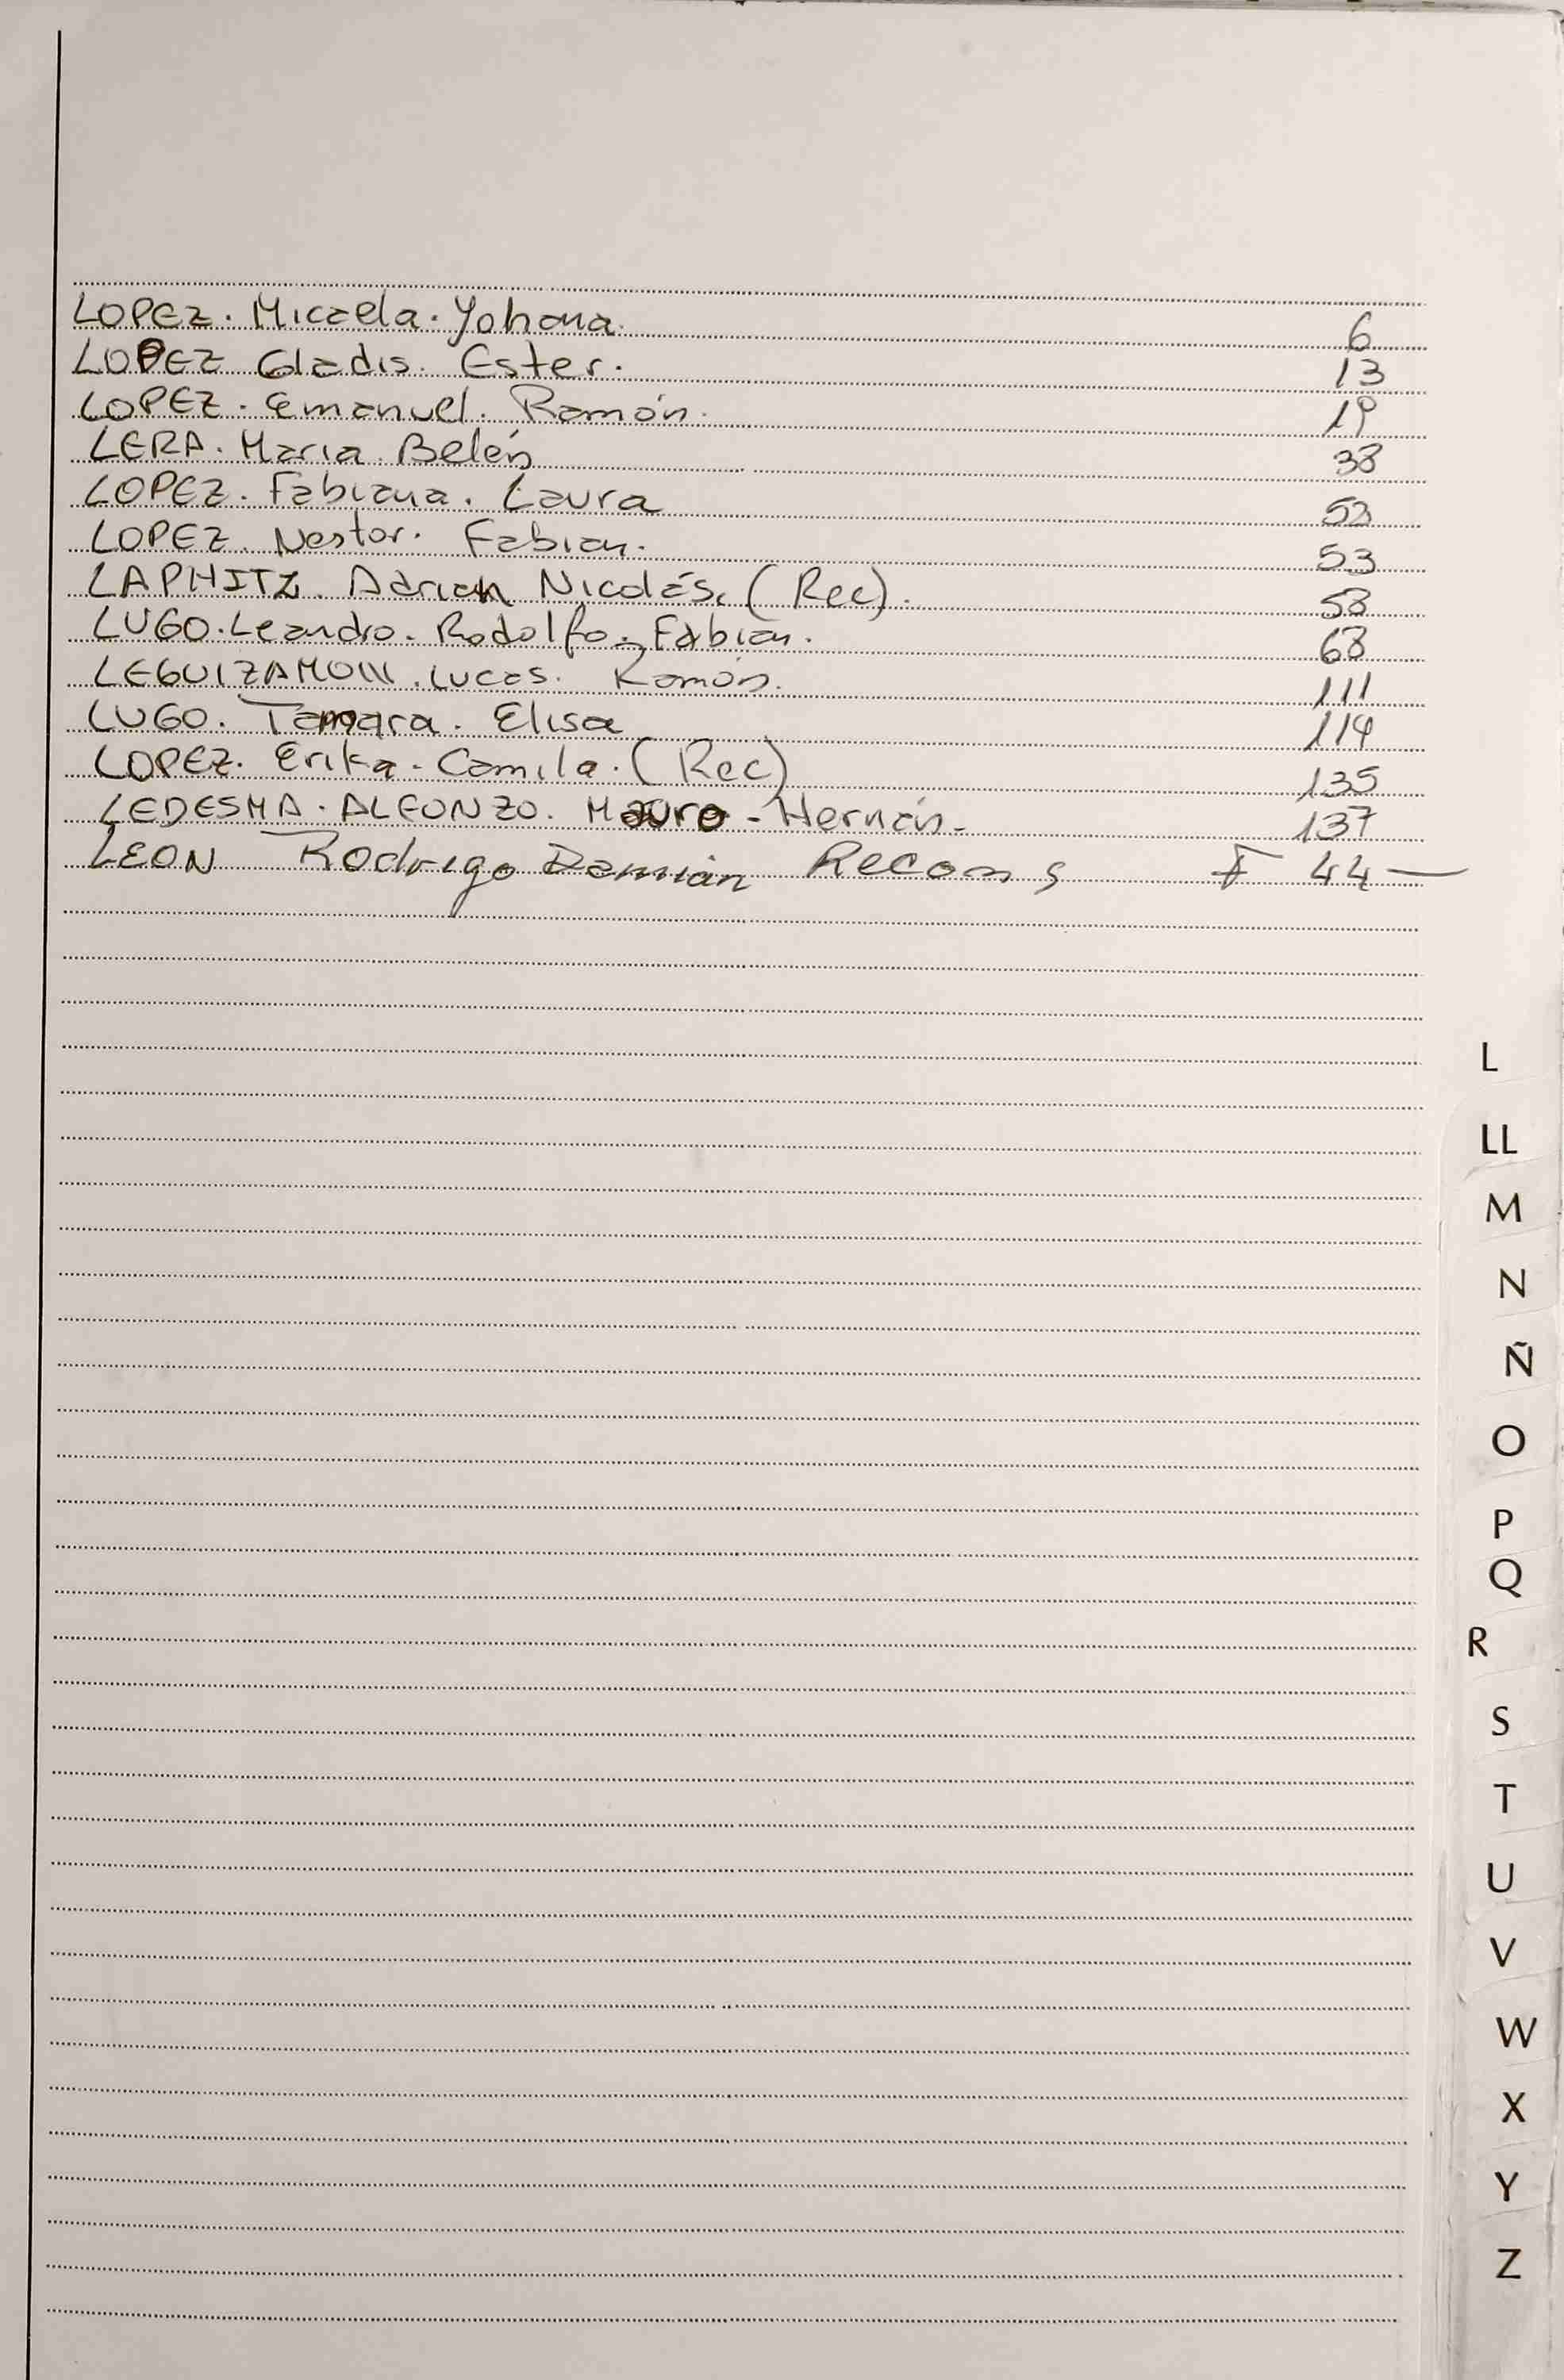 LOPEZ. Micaela. Yohana. 6
LOPEZ Gladis. Ester. 13
LOPEZ. Emanuel. Ramón. 19
LERA. Maria Belén 38
LOPEZ. Fabiana. Laura 53
LOPEZ. Nestor. Fabian. 53
LAPHITZ. Adrian Nicolás. (Rec). 58
LUGO. Leandro. Rodolfo. Fabian. 68
LEGUIZAMON. Lucas. Ramón. 111
LUGO. Tamara. Elisa 114
LOPEZ. Erika. Camila. (Rec) 135
LEDESMA. ALFONZO. Mauro - Hernán - 137
LEON Rodrigo Damián Recon F 44 —
L
LL
M
N
Ñ
O
P
Q
R
S
T
U
V
W
X
Y
Z